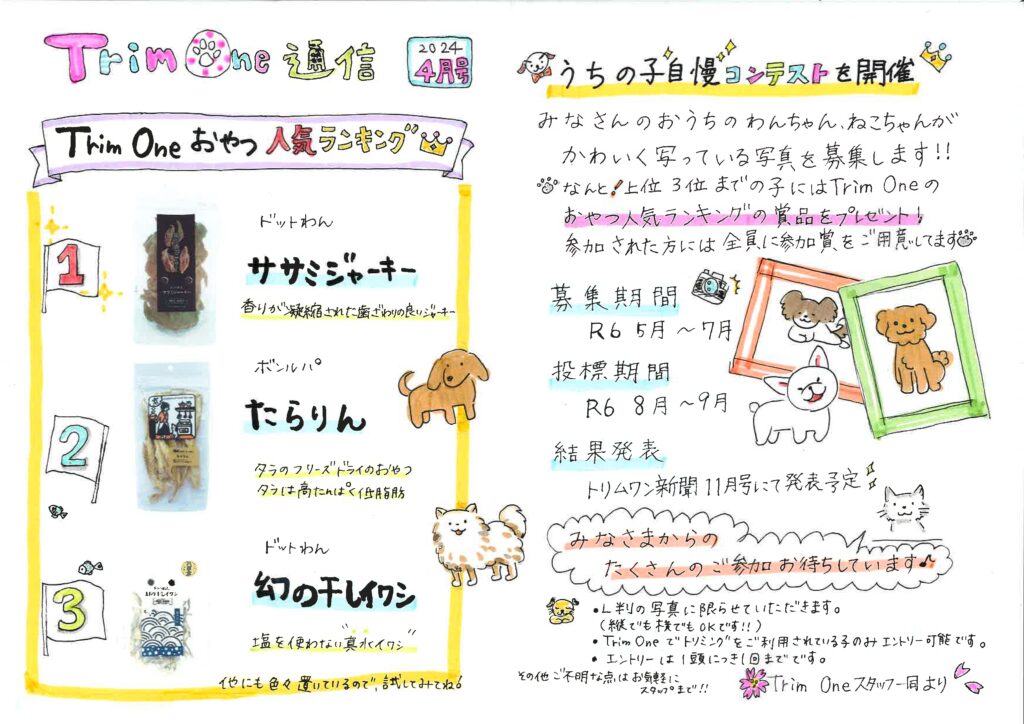 Trim One 通信
2024
4月号
Trim One おやつ 人気ランキング
1
ドットわん
ササミジャーキー
香りが凝縮された歯ざわりの良いジャーキー
2
ボンルパ
たらりん
タラのフリーズドライのおやつ
タラは高たんぱく低脂肪
3
ドットわん
幻の干しイワシ
塩を使わない真水イワシ
他にも色々置いているので、試してみてね!
うちの子自慢コンテストを開催
みなさんのおうちのわんちゃん、ねこちゃんが
かわいく写っている写真を募集します!!
なんと!上位3位までの子にはTrim Oneの
おやつ人気ランキングの賞品をプレゼント!
参加された方には全員に参加賞をご用意してます
募集期間
R6 5月〜7月
投標期間
R6 8月〜9月
結果発表
トリムワン新聞11月号にて発表予定
みなさまからの
たくさんのご参加お待ちしています♪
・L判の写真に限らせていただきます。
(縦でも横でもOKです!!)
・Trim Oneでトリミングをご利用されている子のみエントリー可能です。
・エントリーは1頭につき1回までです。
その他ご不明な点はお気軽に
スタッフまで!!
Trim Oneスタッフ一同より